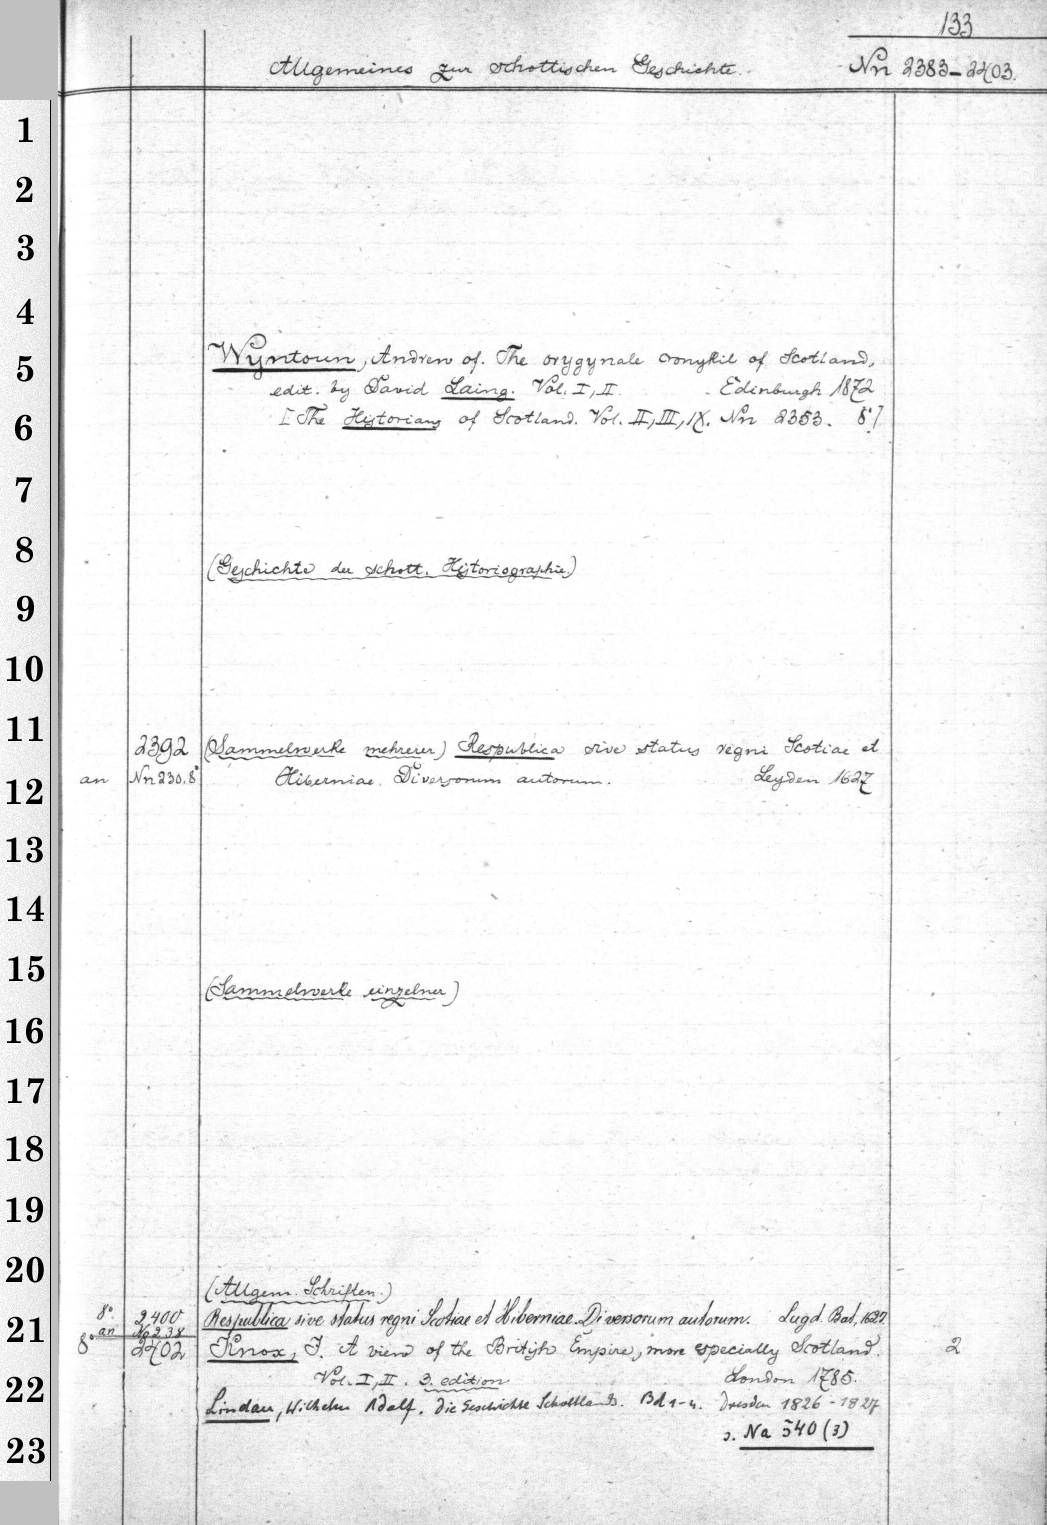 133
Allgemeines zur schottischen Geschichte. Nn 2383-2403.
1
2
3
4
5
Wyntoun, Andrew of. The orygynale cronykil of Scotland,
edit. by David Laing. Vol. I, II. Edinburgh 1872
6
[The Historians of Scotland. Vol. II, III, IX. Nn 2353. 8°]
7
8
(Geschichte der schott. Historiographie)
9
10
11
2392 (Sammelwerke mehrerer) Respublica sive status regni Scotiae et
an Nn 230.8° Hiberniae. Diversorum autorum. Leyden 1627
12
13
14
15
(Sammelwerke einzelner)
16
17
18
19
20
(Allgem. Schriften.)
8° 2400 Respublica sive status regni Scotiae et Hiberniae. Diversorum autorum. Lugd. Bat. 1627
21
an No 238
8° 2402 Knox, J. A view of the British Empire, more especially Scotland. 2
Vol. I, II. 3. edition London 1785.
22
Lindau, Wilhelm Adolf. Die Geschichte Schottlands. Bd 1-4. Dresden 1826-1827
s. Na 540 (3)
23